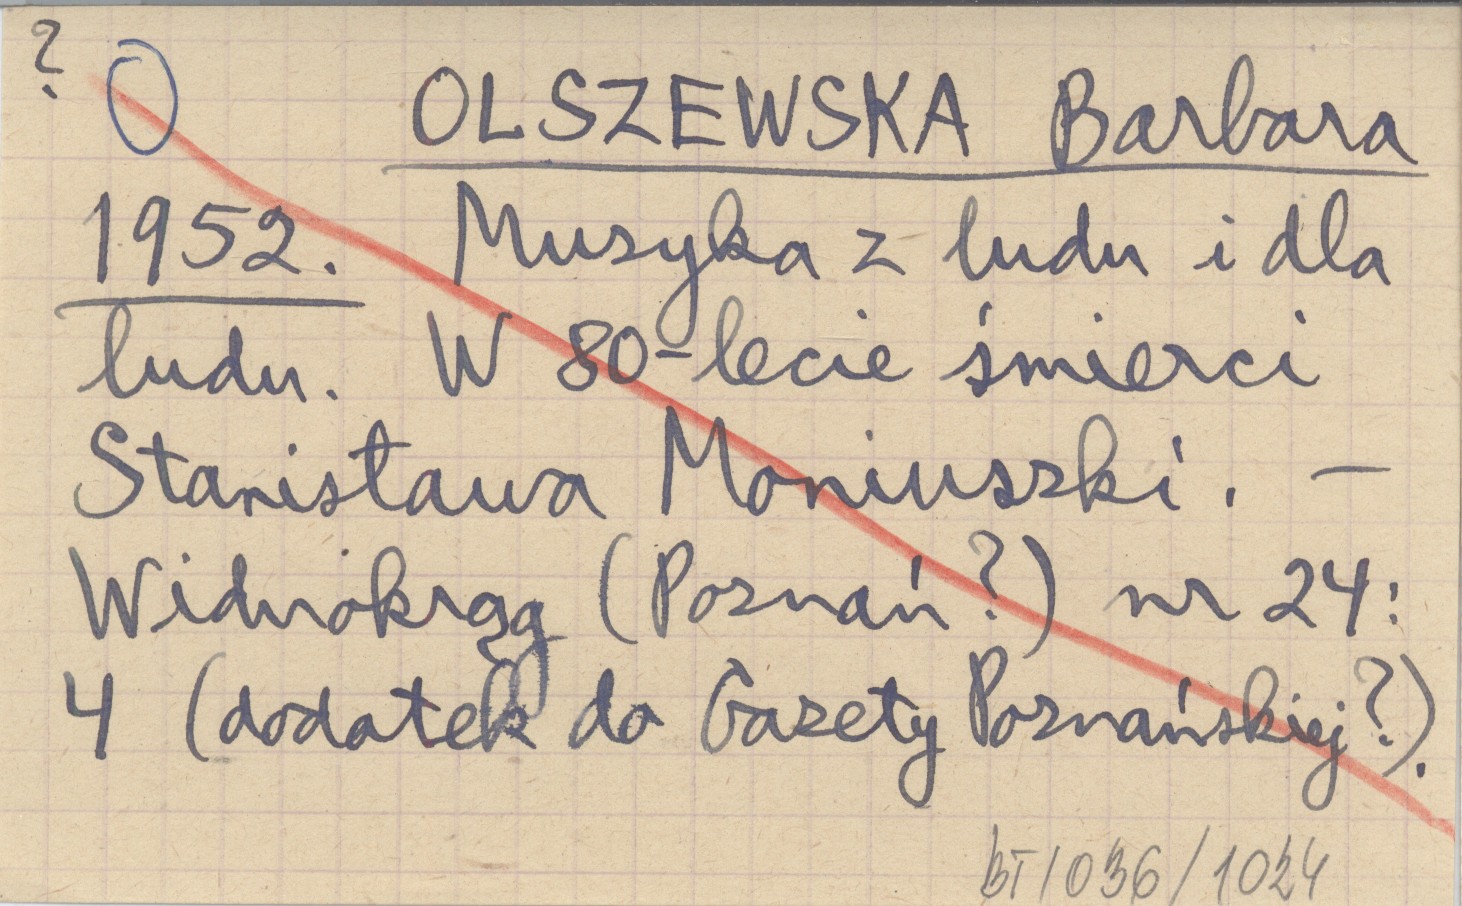 ?
OLSZEWSKA Barbara
1952. Muzyka z ludu i dla
ludu. W 80-lecie śmierci
Stanisława Moniuszki. —
Widnokrąg (Poznań?) nr 24:
4 (dodatek do Gazety Poznańskiej?).
BT/036/1024